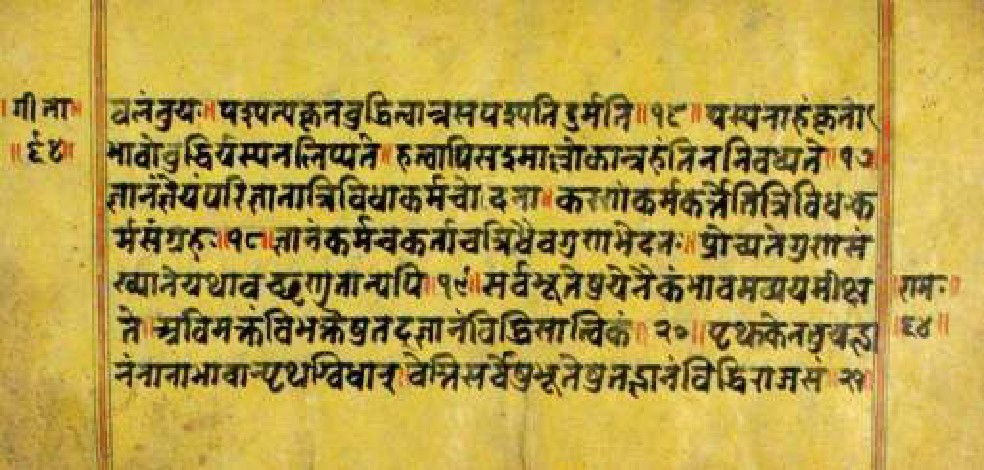 गीता
॥६४॥
वलंतुयः॥ पश्यत्यकृतबुद्धित्वान्नसपश्यतिदुर्मतिः॥१६॥ यस्यनाहंकृतो
भावोबुद्धिर्यस्यनलिप्यते॥ हत्वापिसइमाल्लोकान्नहंतिननिबध्यते॥१७॥
ज्ञानंज्ञेयंपरिज्ञातात्रिविधाकर्मचोदना॥ करणंकर्मकर्त्तेतित्रिविधःक
र्मसंग्रहः॥१८॥ ज्ञानंकर्मचकर्ताचत्रिधैवगुणभेदतः॥ प्रोच्यतेगुणसं
ख्यानेयथावच्छृणुतान्यपि॥१९॥ सर्वभूतेषुयेनैकंभावमव्ययमीक्ष
ते॥ अविभक्तंविभक्तेषुतद्ज्ञानंविद्धिसात्विकं॥२०॥ पृथक्केनतुयज्ज्ञा
नंनानाभावान्पृथग्विधान्॥ वेत्तिसर्वेषुभूतेषुतज्ज्ञानंविद्धिराजसं॥२१॥
रामः
॥६४॥